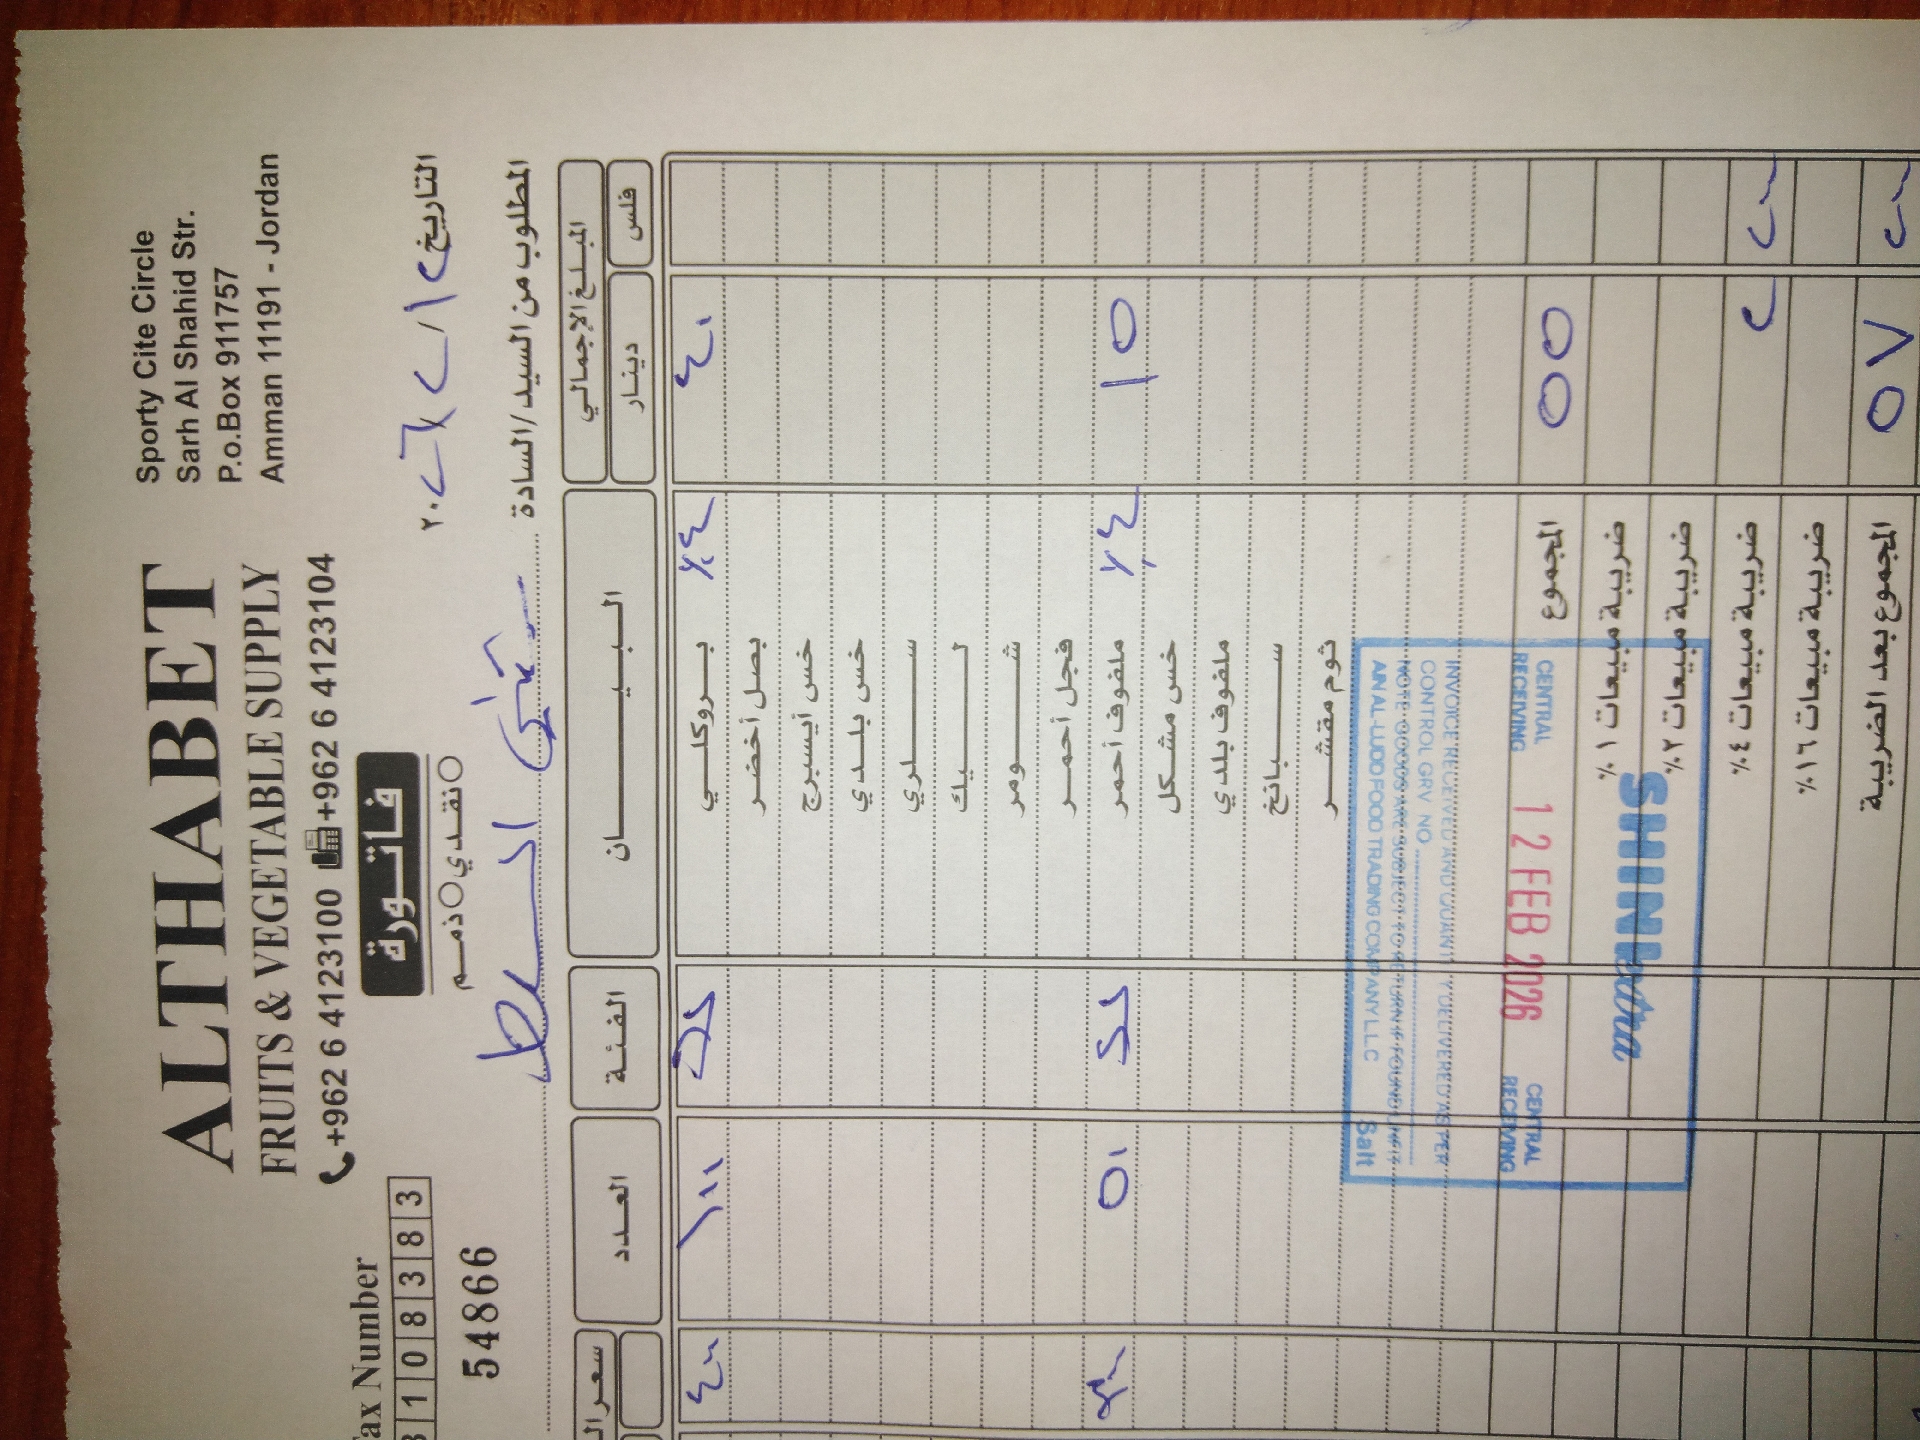 ALTHABET
FRUITS & VEGETABLE SUPPLY
+962 6 4123100 +962 6 4123104
Sporty Cite Circle
Sarh Al Shahid Str.
P.o.Box 911757
Amman 11191 - Jordan
فاتورة
نقدي ذمم
Tax Number
3 1 0 8 3 8 3
54866
التاريخ ٢ / ١ ٢ / ٢٠٢٦
المطلوب من السيد / السادة
المبلغ الإجمالي البيان الفئة العدد
دينار فلس
بروكلي ٤٪ ٤٠ ١٠٠ ٤٠٠
بصل أخضر
خس أيسبرج
خس بلدي
سلري
ليك
شومر
فجل أحمر
ملفوف أحمر ٤٪ ١٥ ٥٠ ٣٠٠
خس مشكل
ملفوف بلدي
سبانخ
ثوم مقشر
AN AL-LUDD FOOD TRADING COMPANY LLC Salt
NOTE GOODS ARE SUBJECT TO RETURN IF FOUND UNFIT
CONTROL GRV NO
INVOICE RECEIVED AND QUANTITY DELIVERED AS PER
CENTRAL RECEIVING 12 FEB 2026 CENTRAL RECEIVING
SHINextra
المجموع ٥٥
ضريبة مبيعات ١٪
ضريبة مبيعات ٢٪
ضريبة مبيعات ٤٪ ٢ ٢٠٠
ضريبة مبيعات ١٦٪
المجموع بعد الضريبة ٥٧ ٢٠٠